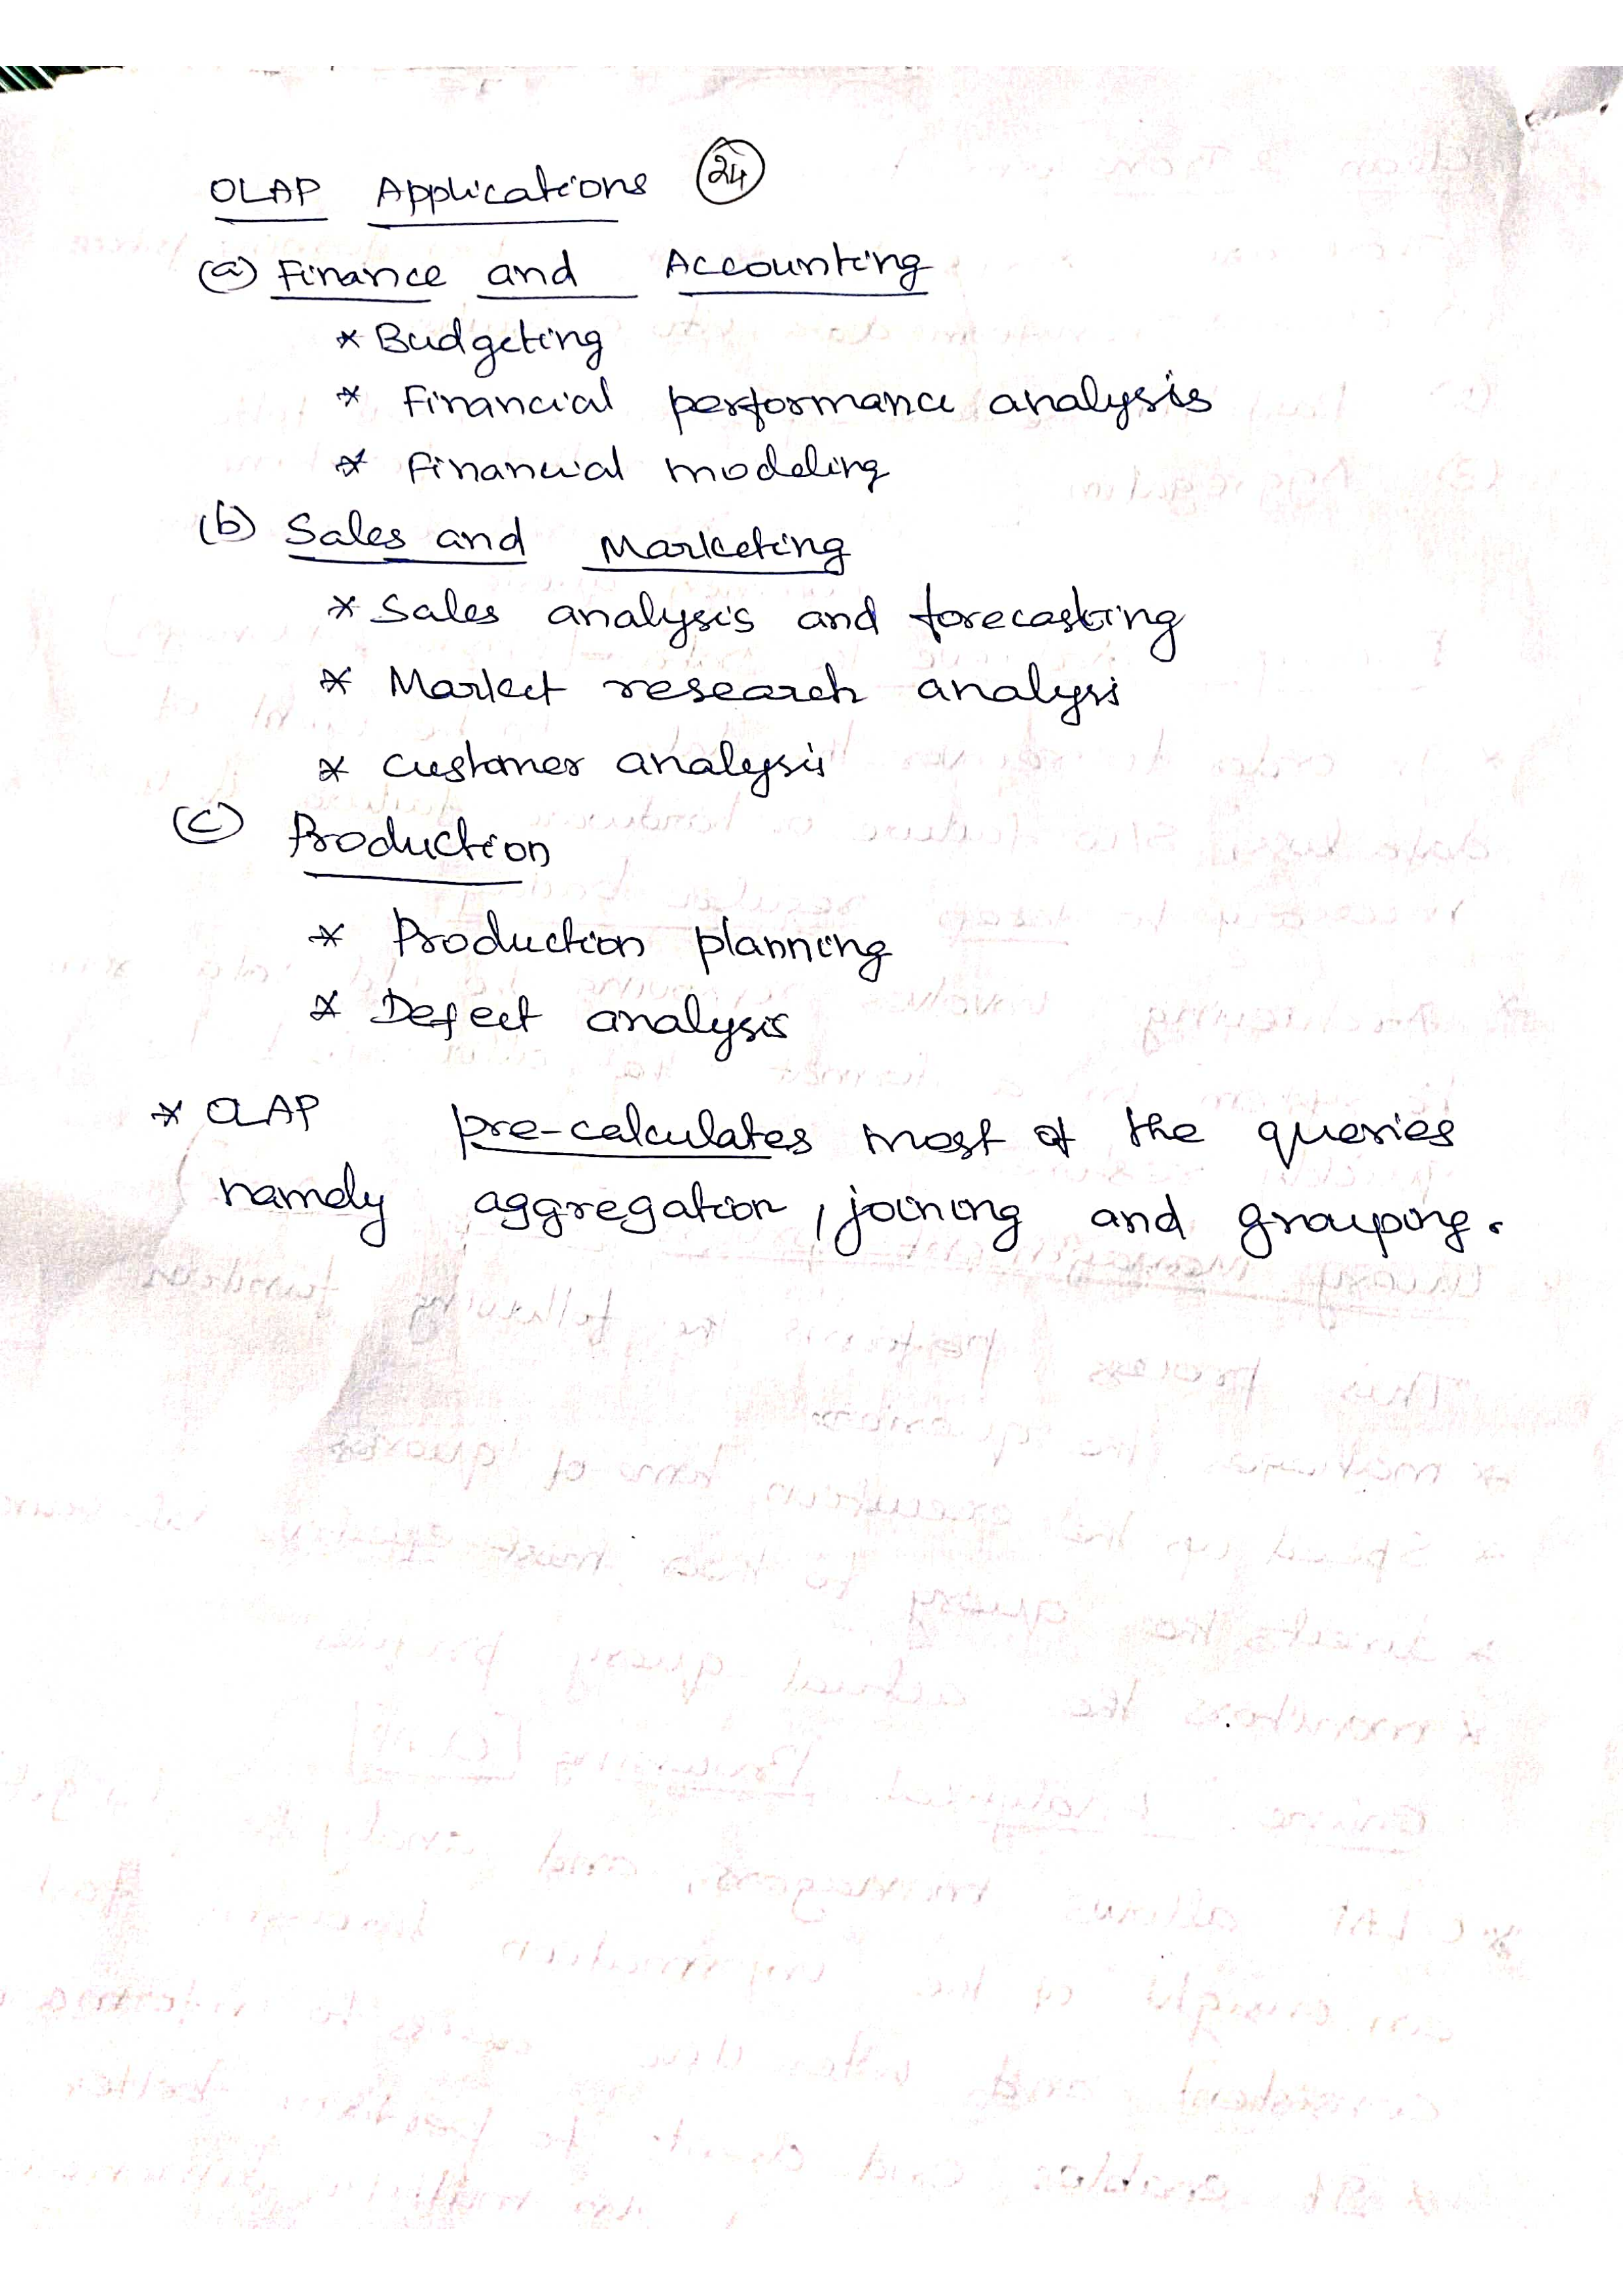 OLAP Applications 24
(a) Finance and Accounting
* Budgeting
* Financial performance analysis
* Financial modeling
(b) Sales and Marketing
* Sales analysis and forecasting
* Market research analysis
* Customer analysis
(c) Production
* Production planning
* Defect analysis
* OLAP pre-calculates most of the queries
namely aggregation, joining and grouping.